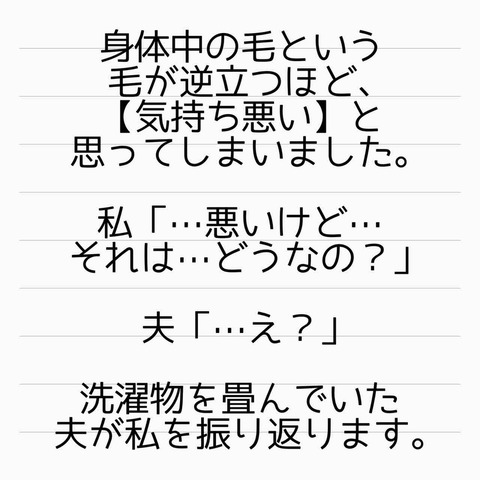 身体中の毛という
毛が逆立つほど、
【気持ち悪い】と
思ってしまいました。
私「…悪いけど…
それは…どうなの？」
夫「…え？」
洗濯物を畳んでいた
夫が私を振り返ります。